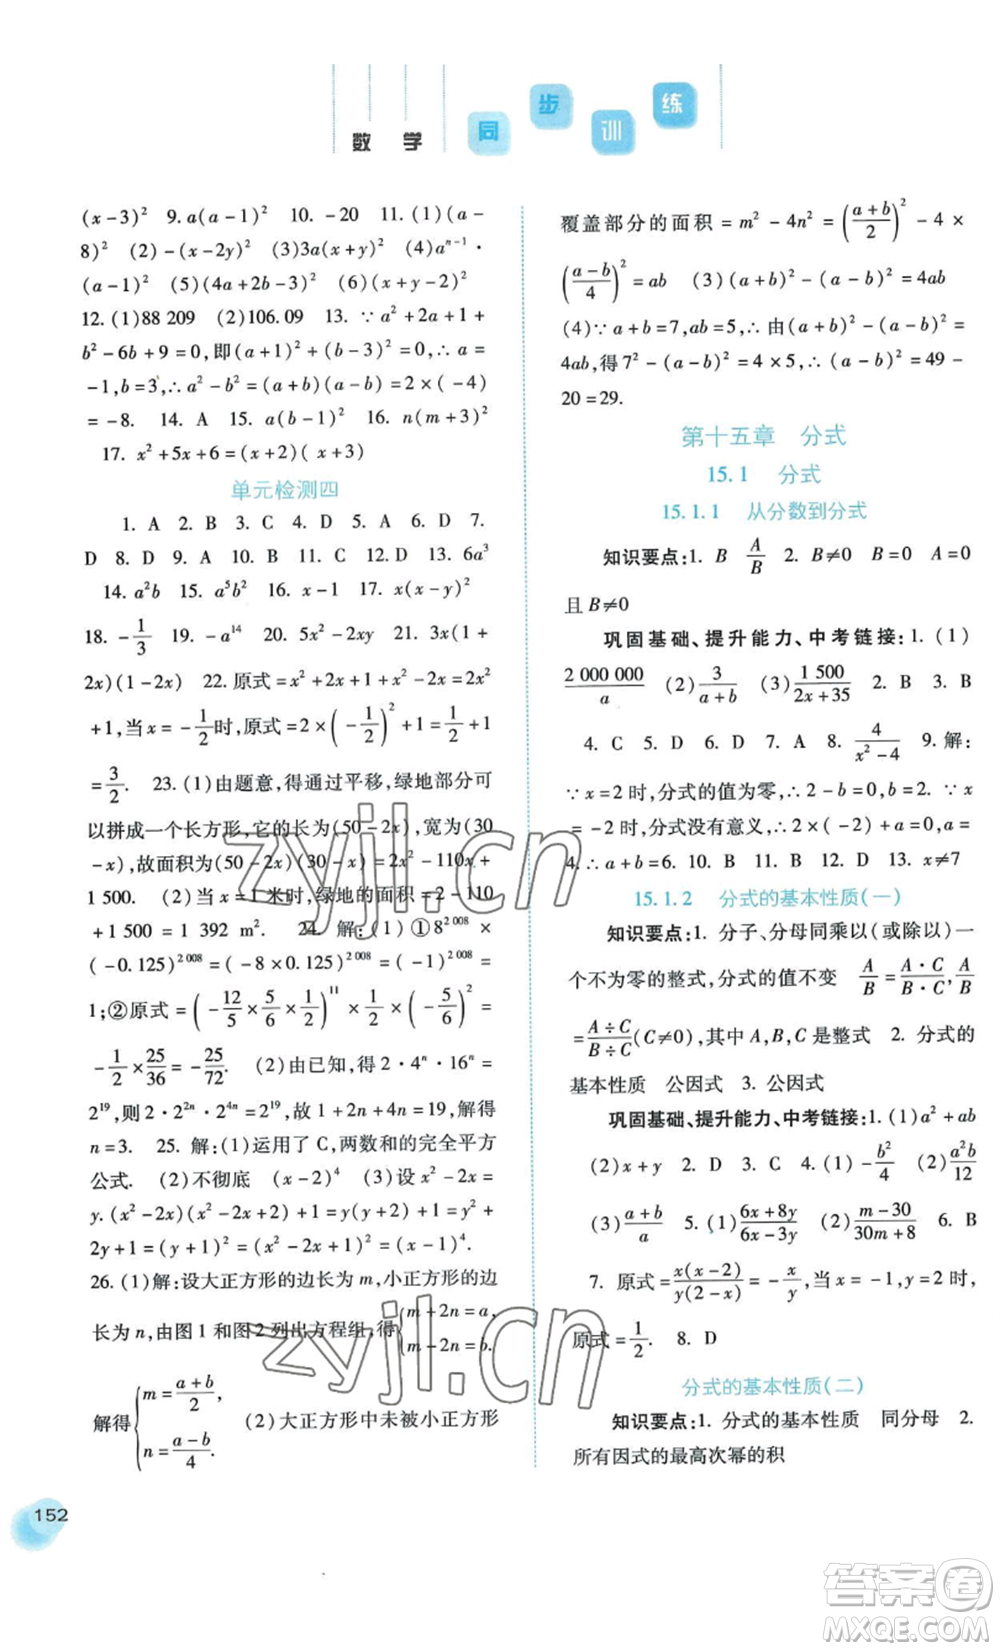 数 学 同 步 训 练
(x-3)² 9. a(a-1)² 10. -20 11. (1)(a-
8)² (2)-(x-2y)² (3)3a(x+y)² (4)aⁿ⁻¹·
(a-1)² (5)(4a+2b-3)² (6)(x+y-2)²
12. (1)88 209 (2)106.09 13. ∵a²+2a+1+
b²-6b+9=0,即(a+1)²+(b-3)²=0,∴a=
-1,b=3,∴a²-b²=(a+b)(a-b)=2×(-4)
=-8. 14. A 15. a(b-1)² 16. n(m+3)²
17. x²+5x+6=(x+2)(x+3)
单元检测四
1. A 2. B 3. C 4. D 5. D 6. D 7.
D 8. D 9. A 10. B 11. C 12. D 13. 6a³
14. a²b 15. a⁵b² 16. x-1 17. x(x-y)²
18. -1/3 19. -a¹⁴ 20. 5x²-2xy 21. 3x(1+
2x)(1-2x) 22. 原式=x²+2x+1-2x+x²=2x²
+1,当x=-1/2时,原式=2×(-1/2)²+1=1/2+1
=3/2. 23. (1)由题意,得通过平移,绿地部分可
以拼成一个长方形,它的长为(50-2x),宽为(30
-x),故面积为(50-2x)(30-x)=2x²-110x+
1 500. (2)当x=1米时,绿地的面积=2-110
+1 500=1 392 m². 24. 解:(1)①8²⁰⁰⁸×
(-0.125)²⁰⁰⁸=(-8×0.125)²⁰⁰⁸=(-1)²⁰⁰⁸=
1;②原式=(-12/5×5/6×1/2)¹¹×1/2×(-5/6)²=
-1/2×25/36=-25/72. (2)由已知,得2·4ⁿ·16ⁿ=
2¹⁹,则2·2²ⁿ·2⁴ⁿ=2¹⁹,故1+2n+4n=19,解得
n=3. 25. 解:(1)运用了C,两数和的完全平方
公式. (2)不彻底 (x-2)⁴ (3)设x²-2x=
y.(x²-2x)(x²-2x+2)+1=y(y+2)+1=y²+
2y+1=(y+1)²=(x²-2x+1)²=(x-1)⁴.
26. (1)解:设大正方形的边长为m,小正方形的边
长为n,由图1和图2列出方程组,得{m+2n=a, m-2n=b.
解得{m=(a+b)/2, n=(a-b)/4. (2)大正方形中未被小正方形
152
覆盖部分的面积=m²-4n²=((a+b)/2)²-4×
((a-b)/4)²=ab (3)(a+b)²-(a-b)²=4ab
(4)∵a+b=7,ab=5,∴由(a+b)²-(a-b)²=
4ab,得7²-(a-b)²=4×5,∴(a-b)²=49-
20=29.
第十五章 分式
15.1 分式
15.1.1 从分数到分式
知识要点:1. B A/B 2. B≠0 B=0 A=0
且B≠0
巩固基础、提升能力、中考链接:1. (1)
2 000 000/a (2)3/(a+b) (3)1 500/(2x+35) 2. B 3. B
4. C 5. D 6. D 7. A 8. 4/(x²-4) 9. 解:
∵x=2时,分式的值为零,∴2-b=0,b=2. ∵x
=-2时,分式没有意义,∴2×(-2)+a=0,a=
4.∴a+b=6. 10. B 11. B 12. A 13. x≠7
15.1.2 分式的基本性质(一)
知识要点:1. 分子、分母同乘以(或除以)一
个不为零的整式,分式的值不变 A/B=(A·C)/(B·C),A/B
=(A÷C)/(B÷C)(C≠0),其中A,B,C是整式 2. 分式的
基本性质 公因式 3. 公因式
巩固基础、提升能力、中考链接:1. (1)a²+ab
(2)x+y 2. D 3. C 4. (1)-b²/4 (2)a²b/12
(3)(a+b)/a 5. (1)(6x+8y)/(6x-3y) (2)(m-30)/(30m+8) 6. B
7. 原式=x(x-2)/y(2-x)=-x/y,当x=-1,y=2时,
原式=1/2. 8. D
分式的基本性质(二)
知识要点:1. 分式的基本性质 同分母 2.
所有因式的最高次幂的积
zyjl.cn
zyjl.cn
答案圈
MXQE.COM